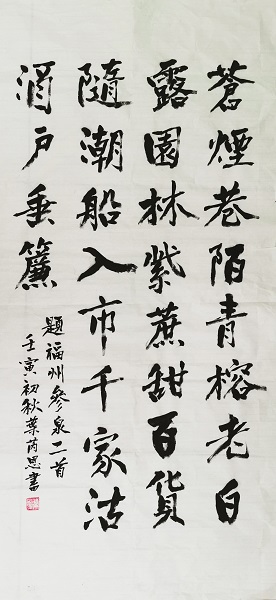 蒼煙巷陌青榕老白
露園林紫蔗甜百貨
隨潮船入市千家沽
酒戶垂簾
題福州參泉二首
壬寅初秋葉芮思書